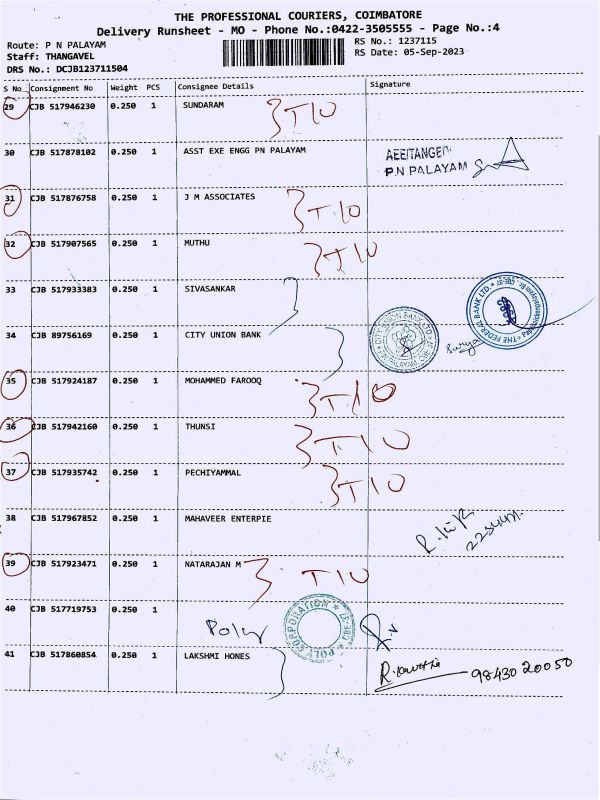 THE PROFESSIONAL COURIERS, COIMBATORE
Delivery Runsheet - MO - Phone No.:0422-3505555 - Page No.:4
Route: P N PALAYAM
RS No.: 1237115
Staff: THANGAVEL
RS Date: 05-Sep-2023
DRS No.: DCJB123711504
S No Consignment No Weight PCS Consignee Details Signature
29 CJB 517946230 0.250 1 SUNDARAM T10
30 CJB 517878102 0.250 1 ASST EXE ENGG PN PALAYAM
P.N PALAYAM
31 CJB 517876758 0.250 1 J M ASSOCIATES T10
32 CJB 517907565 0.250 1 MUTHU T10
33 CJB 517933383 0.250 1 SIVASANKAR
THE FEDERAL BANK LTD.
34 CJB 89756169 0.250 1 CITY UNION BANK
CITY UNION BANK LTD
Surya
35 CJB 517924187 0.250 1 MOHAMMED FAROOQ T10
36 CJB 517942160 0.250 1 THUNSI T10
37 CJB 517935742 0.250 1 PECHIYAMMAL T10
38 CJB 517967852 0.250 1 MAHAVEER ENTERPIE
39 CJB 517923471 0.250 1 NATARAJAN M T10
40 CJB 517719753 0.250 1
Poly POLY CORPORATION CBE-37
41 CJB 517860854 0.250 1 LAKSHMI HONES
98430 20050